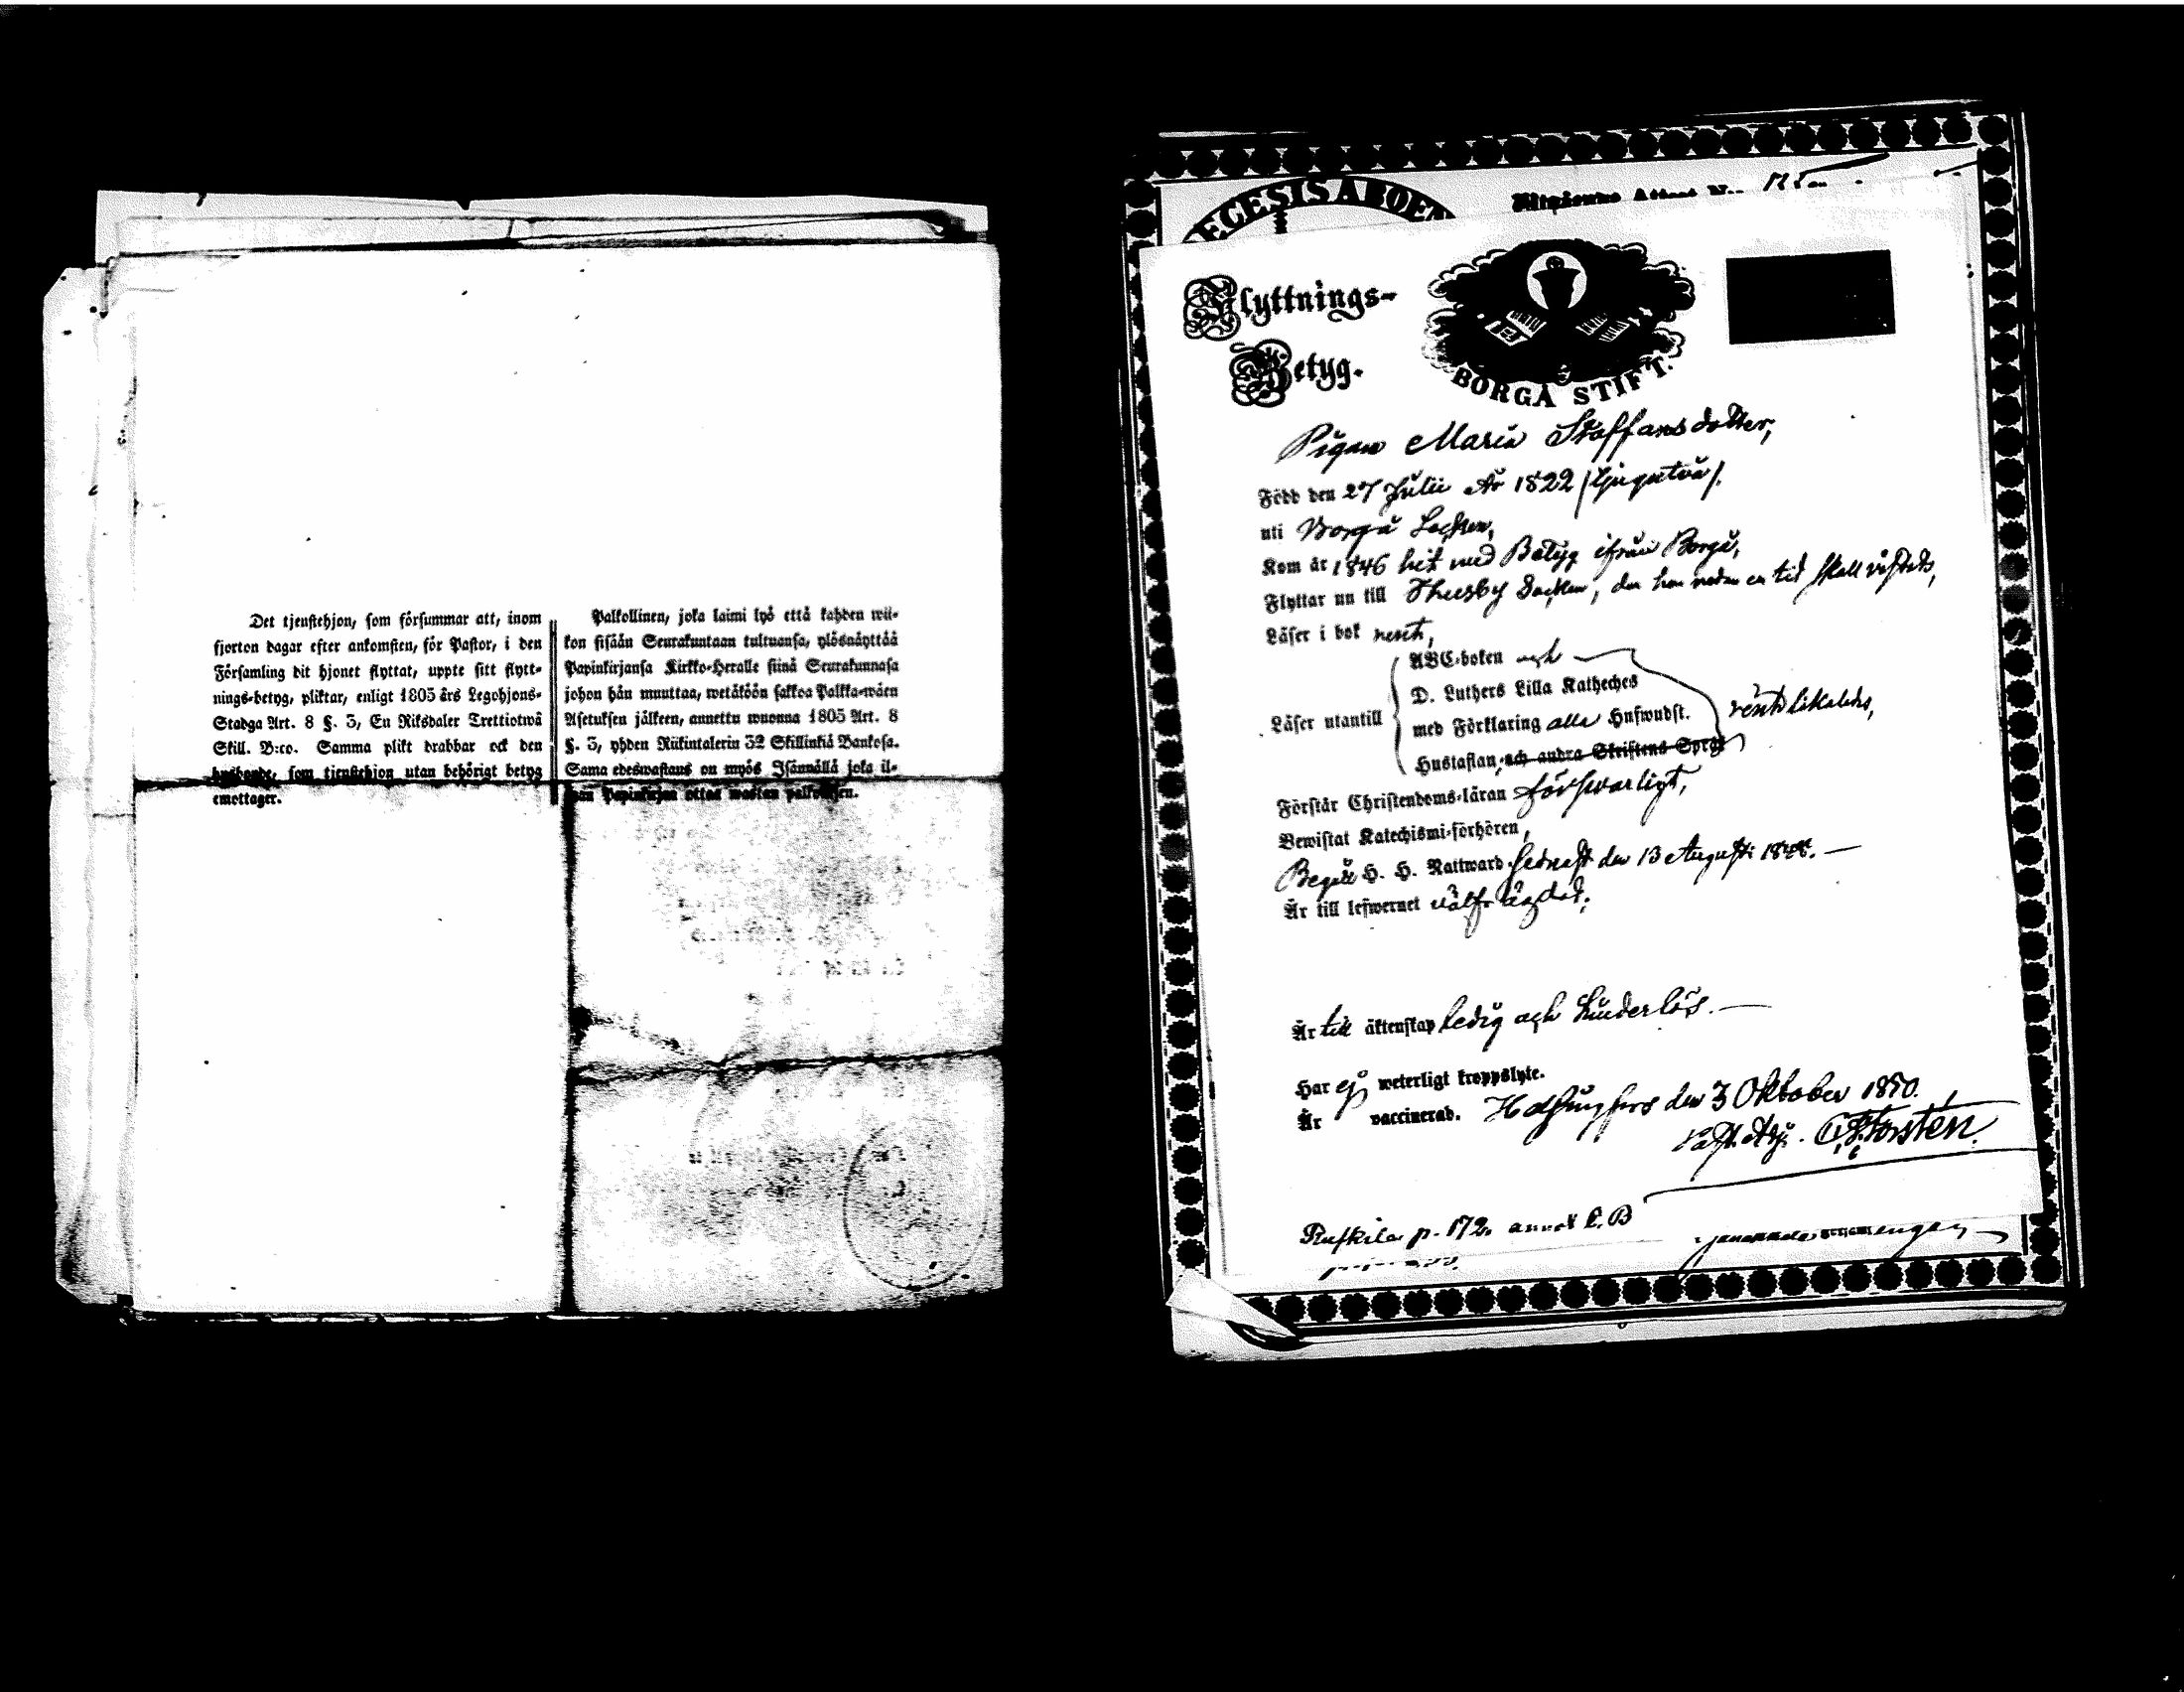 Det tjenstehjon, som försummar att, inom
fjorton dagar efter ankomsten, för Pastor, i den
Församling dit hjonet flyttat, uppte sitt flytt-
nings-betyg, pliktar, enligt 1805 års Legohjons-
Stadga Art. 8 §. 3, En Riksdaler Trettiotwå
Skill. B:co. Samma plikt drabbar ock den
husbonde, som tjenstehjon utan behörigt betyg
emottager.
Palkollinen, joka laimi lyö että kahden wii-
kon sisään Seurakuntaan tultuansa, ylösnäyttää
Papinkirjansa Kirkko-Heralle siinä Seurakunnasa
johon hän muuttaa, wetäköön sakkoa Palkka-wäen
Asetuksen jälkeen, annettu wuonna 1805 Art. 8
§. 3, yhden Riikintalerin 32 Skillinkiä Bankosa.
Sama edeswastaus on myös Isännällä joka il-
man Papinkirjaa ottaa wastan palkollisen.
EGESIS ABOEN
Attest N..
Flyttnings-
Betyg.
BORGÅ STIFT.
Pigan Maria Staffansdotter,
Född den 27 Julii År 1822 /tjugutvå/.
uti Borgå Sochen,
Kom år 1846 hit med Betyg ifrån Borgå,
Flyttar nu till Thusby Sochen, der hon redan en tid skall vistats,
Läser i bok rent,
ABC-boken och
D. Luthers Lilla Katheches
Läser utantill med Förklaring alla Hufwudst. rent likaledes,
Hustaflan, och andra Skriftens Språk
Förstår Christendoms-läran försvarligt,
Bewistat Katechismi-förhören,
Begått H. H. Nattward sednast den 13 Augusti 1848.
Är till lefwernet välfrägdad,
Är till äktenskap ledig och hinderlös.
Har ej weterligt kroppslyte.
Är vaccinerad. Helsingfors den 3 Oktober 1850.
Past. Adj. Forstén.
p. 172. annot L. B